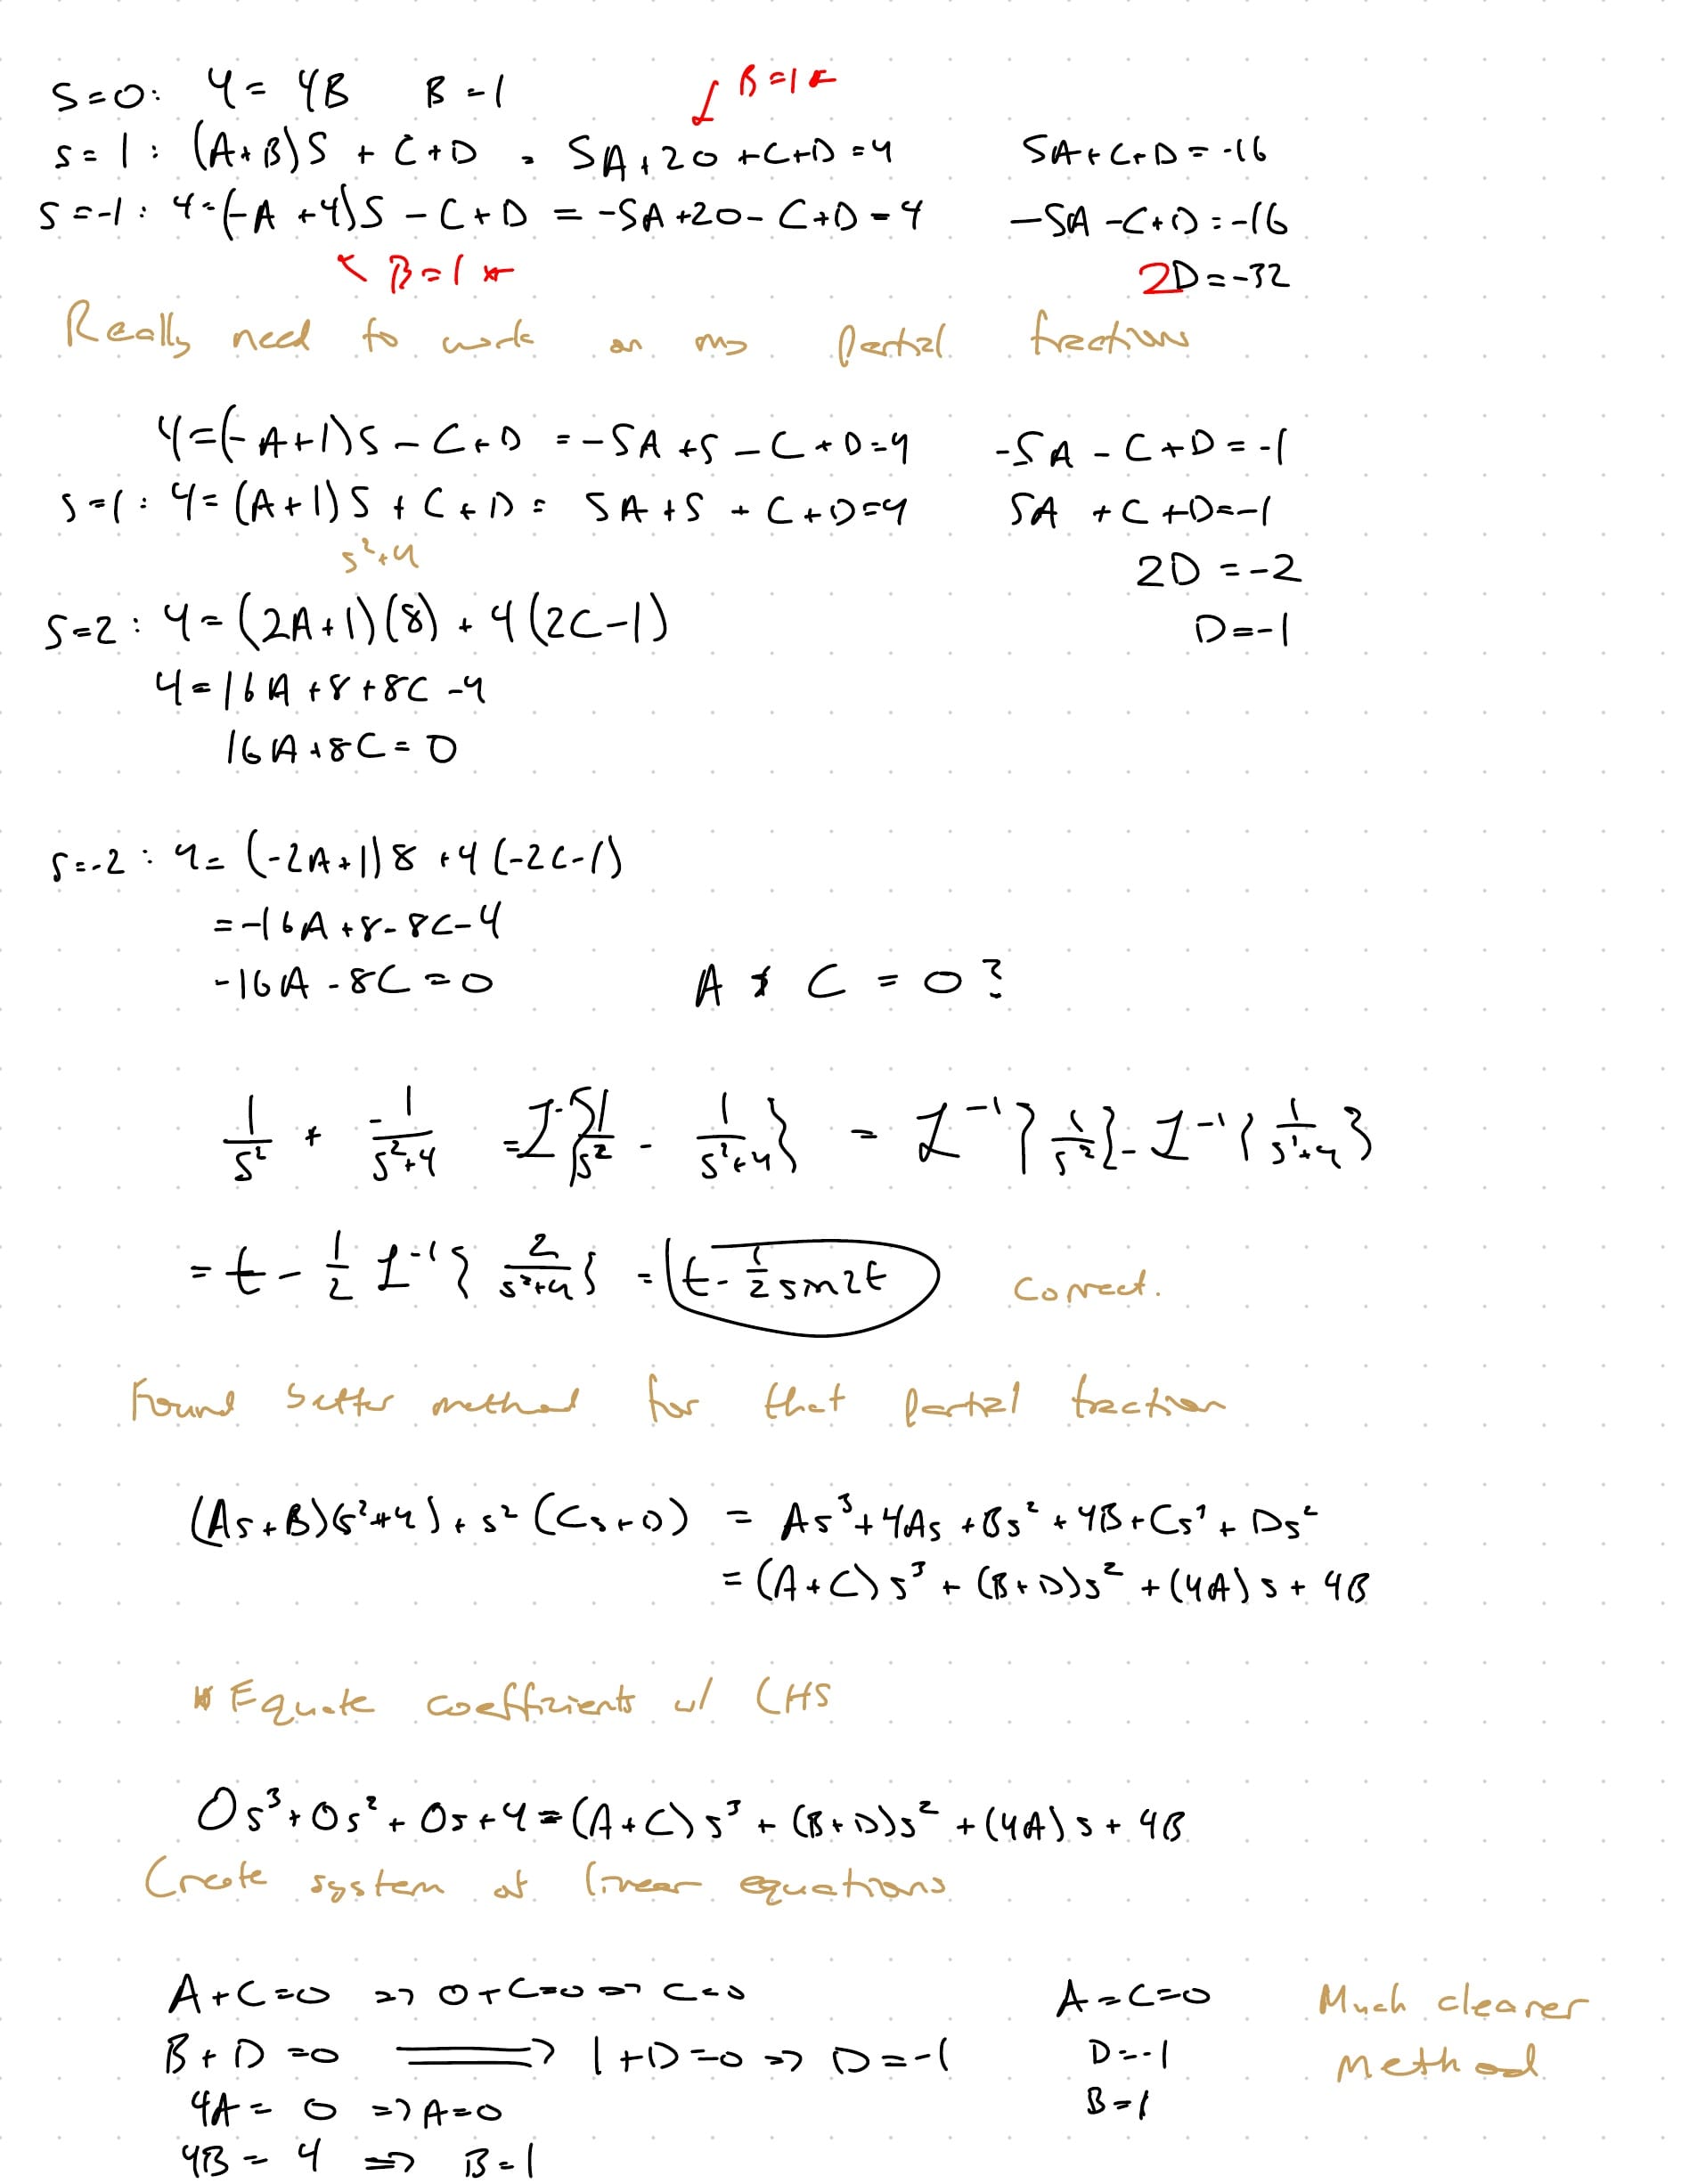 s=0: 4=4B B=1
↓ B=1 *
s=1: (A+B)5 + C+D = 5A+20+C+D=4 5A+C+D=-16
s=-1: 4=(-A+4)5 - C+D = -5A+20-C+D=4 -5A-C+D=-16
↖ B=1 * 2D=-32
Really need to work on my partial fractions
4=(-A+1)5 - C+D = -5A+5-C+D=4 -5A-C+D=-1
s=1: 4=(A+1)5+C+D = 5A+5+C+D=4 5A+C+D=-1
s²+4 2D=-2
s=2: 4=(2A+1)(8)+4(2C-1) D=-1
4=16A+8+8C-4
16A+8C=0
s=-2: 4=(-2A+1)8+4(-2C-1)
=-16A+8-8C-4
-16A-8C=0 A & C = 0?
1/s² + -1/(s²+4) = L⁻¹{1/s² - 1/(s²+4)} = L⁻¹{1/s²} - L⁻¹{1/(s²+4)}
= t - 1/2 L⁻¹{2/(s²+4)} = t - 1/2 sin2t Correct.
Found better method for that partial fraction
(As+B)(s²+4)+s²(Cs+D) = As³+4As+Bs²+4B+Cs³+Ds²
= (A+C)s³+(B+D)s²+(4A)s+4B
* Equate coefficients w/ LHS
0s³+0s²+0s+4=(A+C)s³+(B+D)s²+(4A)s+4B
Create system of linear equations
A+C=0 => 0+C=0 => C=0 A=C=0 Much cleaner
B+D=0 ⟹ 1+D=0 => D=-1 D=-1 method
4A=0 => A=0 B=1
4B=4 => B=1